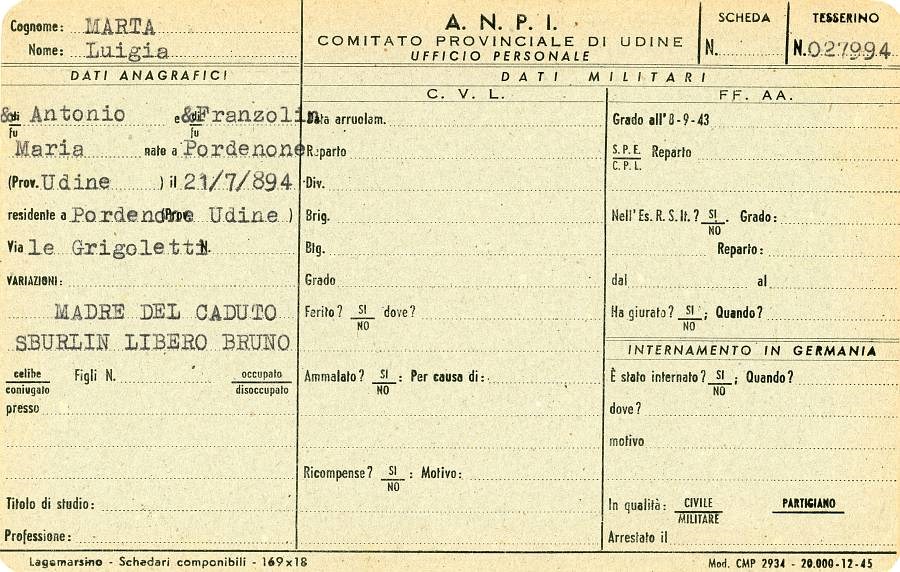 Cognome: MARTA
Nome: Luigia
A. N. P. I.
COMITATO PROVINCIALE DI UDINE
UFFICIO PERSONALE
SCHEDA
N.
TESSERINO
N.027994
DATI ANAGRAFICI
& di fu Antonio e di fu &Franzolin
Maria nato a Pordenone
(Prov. Udine ) il 21/7/894
residente a Pordenone (Prov. Udine )
Via le Grigoletti N.
VARIAZIONI:
MADRE DEL CADUTO
SBURLIN LIBERO BRUNO
celibe coniugato Figli N. occupato disoccupato
presso
Titolo di studio:
Professione:
DATI MILITARI
C. V. L.
Data arruolam.
Reparto
Div.
Brig.
Btg.
Grado
Ferito? SI NO dove?
Ammalato? SI NO : Per causa di:
Ricompense? SI NO : Motivo:
FF. AA.
Grado all'8-9-43
S.P.E. C.P.L. Reparto
Nell'Es. R. S. It.? SI NO . Grado:
Reparto:
dal al
Ha giurato? SI NO ; Quando?
INTERNAMENTO IN GERMANIA
È stato internato? SI NO ; Quando?
dove?
motivo
In qualità: CIVILE MILITARE PARTIGIANO
Arrestato il
Lagomarsino - Schedari componibili - 169x18
Mod. CMP 2934 - 20.000-12-45